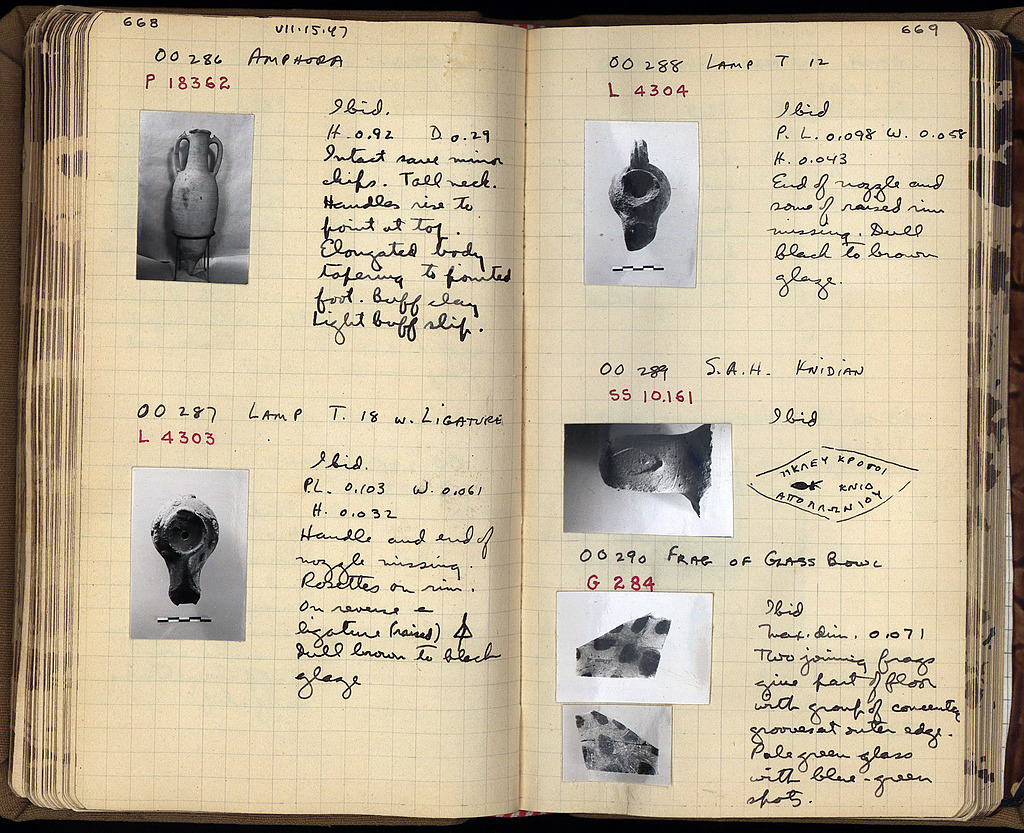 668
VII.15.47
OO 286 AMPHORA
P 18362
Ibid.
H. 0.92 D. 0.29
Intact save minor
chips. Tall neck.
Handles rise to
point at top.
Elongated body
tapering to pointed
foot. Buff clay
Light buff slip.
OO 287 LAMP T. 18 W. LIGATURE
L 4303
Ibid.
P.L. 0.103 W. 0.061
H. 0.032
Handle and end of
nozzle missing.
Rosettes on rim.
On reverse a
ligature (raised)
Dull brown to black
glaze
669
OO 288 LAMP T 12
L 4304
Ibid
P. L. 0.098 W. 0.058
H. 0.043
End of nozzle and
some of raised rim
missing. Dull
black to brown
glaze.
OO 289 S.A.H. KNIDIAN
SS 10.161
Ibid
ΚΝΙΔ
ΑΠΟΛΛΩΝΙΟΥ
OO 290 FRAG OF GLASS BOWL
G 284
Ibid
Max. dim. 0.071
Two joining frags
give part of floor
with group of concentric
grooves at outer edge.
Pale green glass
with blue-green
spots.